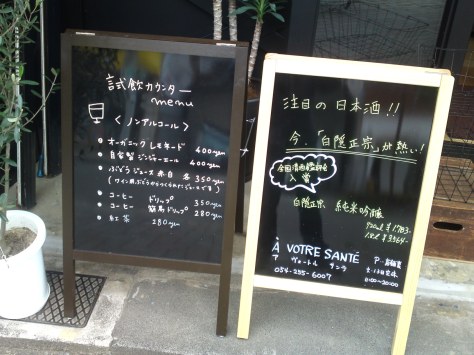 試飲カウンター
menu
<ノンアルコール>
オーガニックレモネード 400yen
自家製ジンジャーエール 400yen
ぶどうジュース 赤・白 各350yen
(ワイン用ぶどうからつくったジュースです)
コーヒー ドリップ 350yen
コーヒー 簡易ドリップ 280yen
紅茶 280yen
注目の日本酒!!
今、「白隠正宗」が熱い!
白隠正宗 純米吟醸
720ml
1.8L
À VOTRE SANTÉ
ア ヴォートル サンテ
054-235-6007